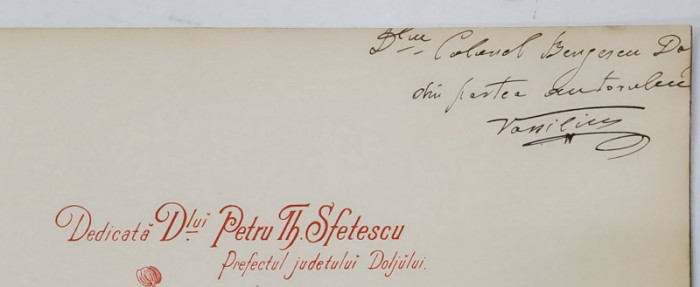 Dlui Colonel Bengescu Da
din partea autorului
Vassiliu
Dedicată Dlui Petru Th. Sfetescu
Prefectul judetului Doljŭlui.